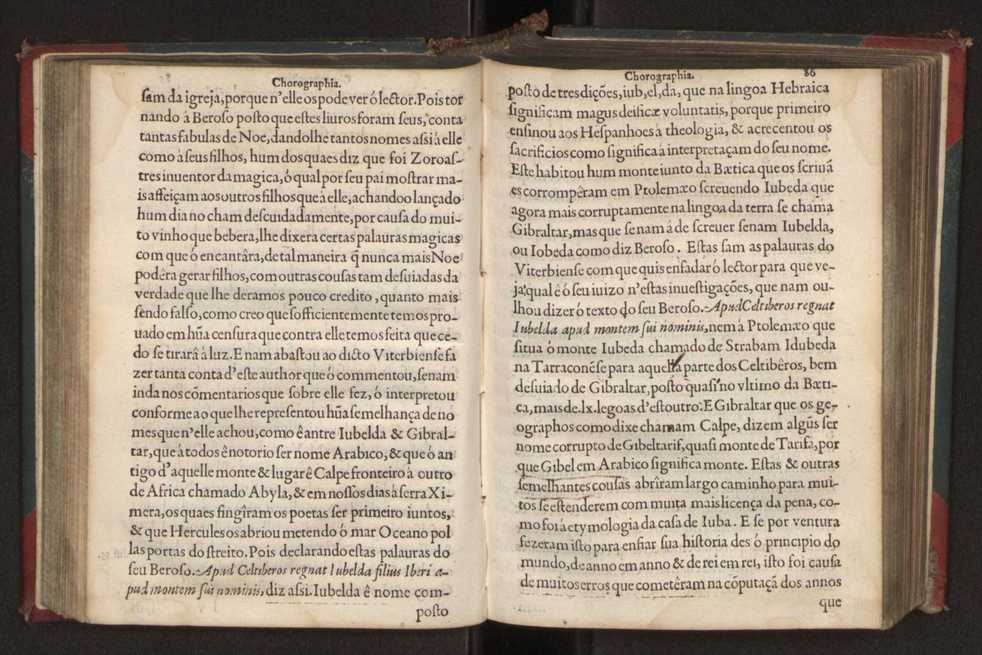 Chorographia.
sam da igreja, porque n'elle os pode ver ó lector. Pois tor
nando à Beroso posto que estes liuros foram seus, conta
tantas fabulas de Noe, dandolhe tantos nomes assi á elle
como à seus filhos, hum dos quaes diz que foi Zoroas-
tres inuentor da magica, ó qual por seu pai mostrar ma-
is affeiçam aos outros filhos que à elle, achandoo lançado
hum dia no cham descuidadamente, por causa do mui-
to vinho que bebera, lhe dixera certas palauras magicas
com que ó encantâra, de tal maneira q̃ nunca mais Noe
podêra gerar filhos, com outras cousas tam desuiadas da
verdade que lhe deramos pouco credito, quanto mais
sendo falso, como creo que sofficientemente temos pro-
uado em hũa censura que contra elle temos feita que ce-
do se tirará à luz. E nam abastou ao dicto Viterbiense fa
zer tanta conta d'este author que ó commentou, senam
inda nos cõmentarios que sobre elle fez, ó interpretou
conforme ao que lhe representou hũa semelhança de no
mes que n'elle achou, como ê antre Iubelda & Gibral-
tar, que à todos ê notorio ser nome Arabico, & que ó an
tigo d'aquelle monte & lugar ê Calpe fronteiro à outro
de Africa chamado Abyla, & em nossos dias á serra Xi-
mera, os quaes fingîram os poetas ser primeiro iuntos,
& que Hercules os abriou metendo ó mar Oceano pol
las portas do streito. Pois declarando estas palauras do
seu Beroso. Apud Celtiberos regnat Iubelda filius Iberi a-
pud montem sui nominis, diz assi. Iubelda ê nome com-
posto
Chorographia. 86
posto de tres dições, iub, el, da, que na lingoa Hebraica
significam magus deificæ voluntatis, porque primeiro
ensinou aos Hespanhoes à theologia, & acrecentou os
sacrificios como significa à interpretaçam do seu nome.
Este habitou hum monte iunto da Bætica que os scriuã
es corrompêram em Ptolemæo screuendo Iubeda que
agora mais corruptamente na lingoa da terra se chama
Gibraltar, mas que se nam á de screuer senam Iubelda,
ou Iobeda como diz Beroso. Estas sam as palauras do
Viterbiense com que quis enfadar ó lector para que ve-
ja qual ê ó seu iuizo n'estas inuestigações, que nam ou-
lhou dizer ó texto do seu Beroso. Apud Celtiberos regnat
Iubelda apud montem sui nominis, nem à Ptolemæo que
situa ó monte Iubeda chamado de Strabam Idubeda
na Tarraconẽse para aquella parte dos Celtibêros, bem
desuiado de Gibraltar, posto quasi no vltimo da Bæti-
ca, mais de .lx. legoas d'estoutro: E Gibraltar que os ge-
ographos como dixe chamam Calpe, dizem algũs ser
nome corrupto de Gibeltarif, quasi monte de Tarifa, por
que Gibel em Arabico significa monte. Estas & outras
semelhantes cousas abrîram largo caminho para mui-
tos se estenderem com muita mais licença da pena, co-
mo foi á etymologia da casa de Iuba. E se por ventura
fezeram isto para enfiar sua historia des ó principio do
mundo, de anno em anno & de rei em rei, isto foi causa
de muitos erros que cometêram na cõputaçã dos annos
que